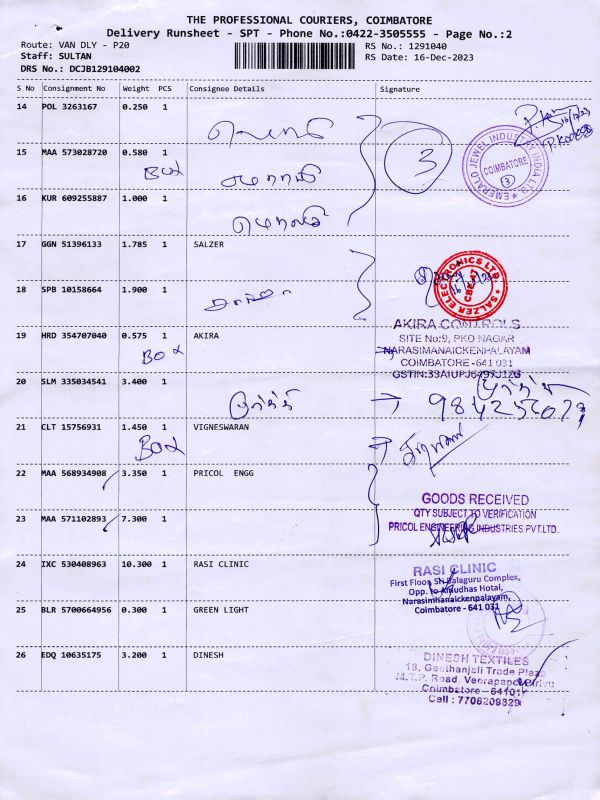 THE PROFESSIONAL COURIERS, COIMBATORE
Delivery Runsheet - SPT - Phone No.:0422-3505555 - Page No.:2
Route: VAN DLY - P20
RS No.: 1291040
Staff: SULTAN
RS Date: 16-Dec-2023
DRS No.: DCJB129104002
S No Consignment No Weight PCS Consignee Details Signature
14 POL 3263167 0.250 1
15 MAA 573028720 0.580 1
Box
3
EMERALD JEWEL INDUSTRY INDIA LTD.
COIMBATORE
3
16 KUR 609255887 1.000 1
17 GGN 51396133 1.785 1 SALZER
18 SPB 10158664 1.900 1
SALZER ELECTRONICS LTD.
19 HRD 354707040 0.575 1 AKIRA
Box
AKIRA CONTROLS
SITE No:9, PKD NAGAR
NARASIMANAICKENPALAYAM
COIMBATORE-641 031
20 SLM 335034541 3.400 1
21 CLT 15756931 1.450 1 VIGNESWARAN
Box
22 MAA 568934908 3.350 1 PRICOL ENGG
23 MAA 571102893 7.300 1
GOODS RECEIVED
QTY SUBJECT TO VERIFICATION
PRICOL ENGINEERING INDUSTRIES PVT.LTD.
24 IXC 530408963 10.300 1 RASI CLINIC
RASI CLINIC
First Floor, Balaguru Complex,
Opp. to Amudhas Hotal,
Narasimhanaickenpalayam,
Coimbatore - 641 031
25 BLR 5700664956 0.300 1 GREEN LIGHT
26 EDQ 10635175 3.200 1 DINESH
DINESH TEXTILES
18, Geethanjali Trade Plaza
M.T.P. Road, Veerapandi
Coimbatore - 64101
Cell : 7708209829